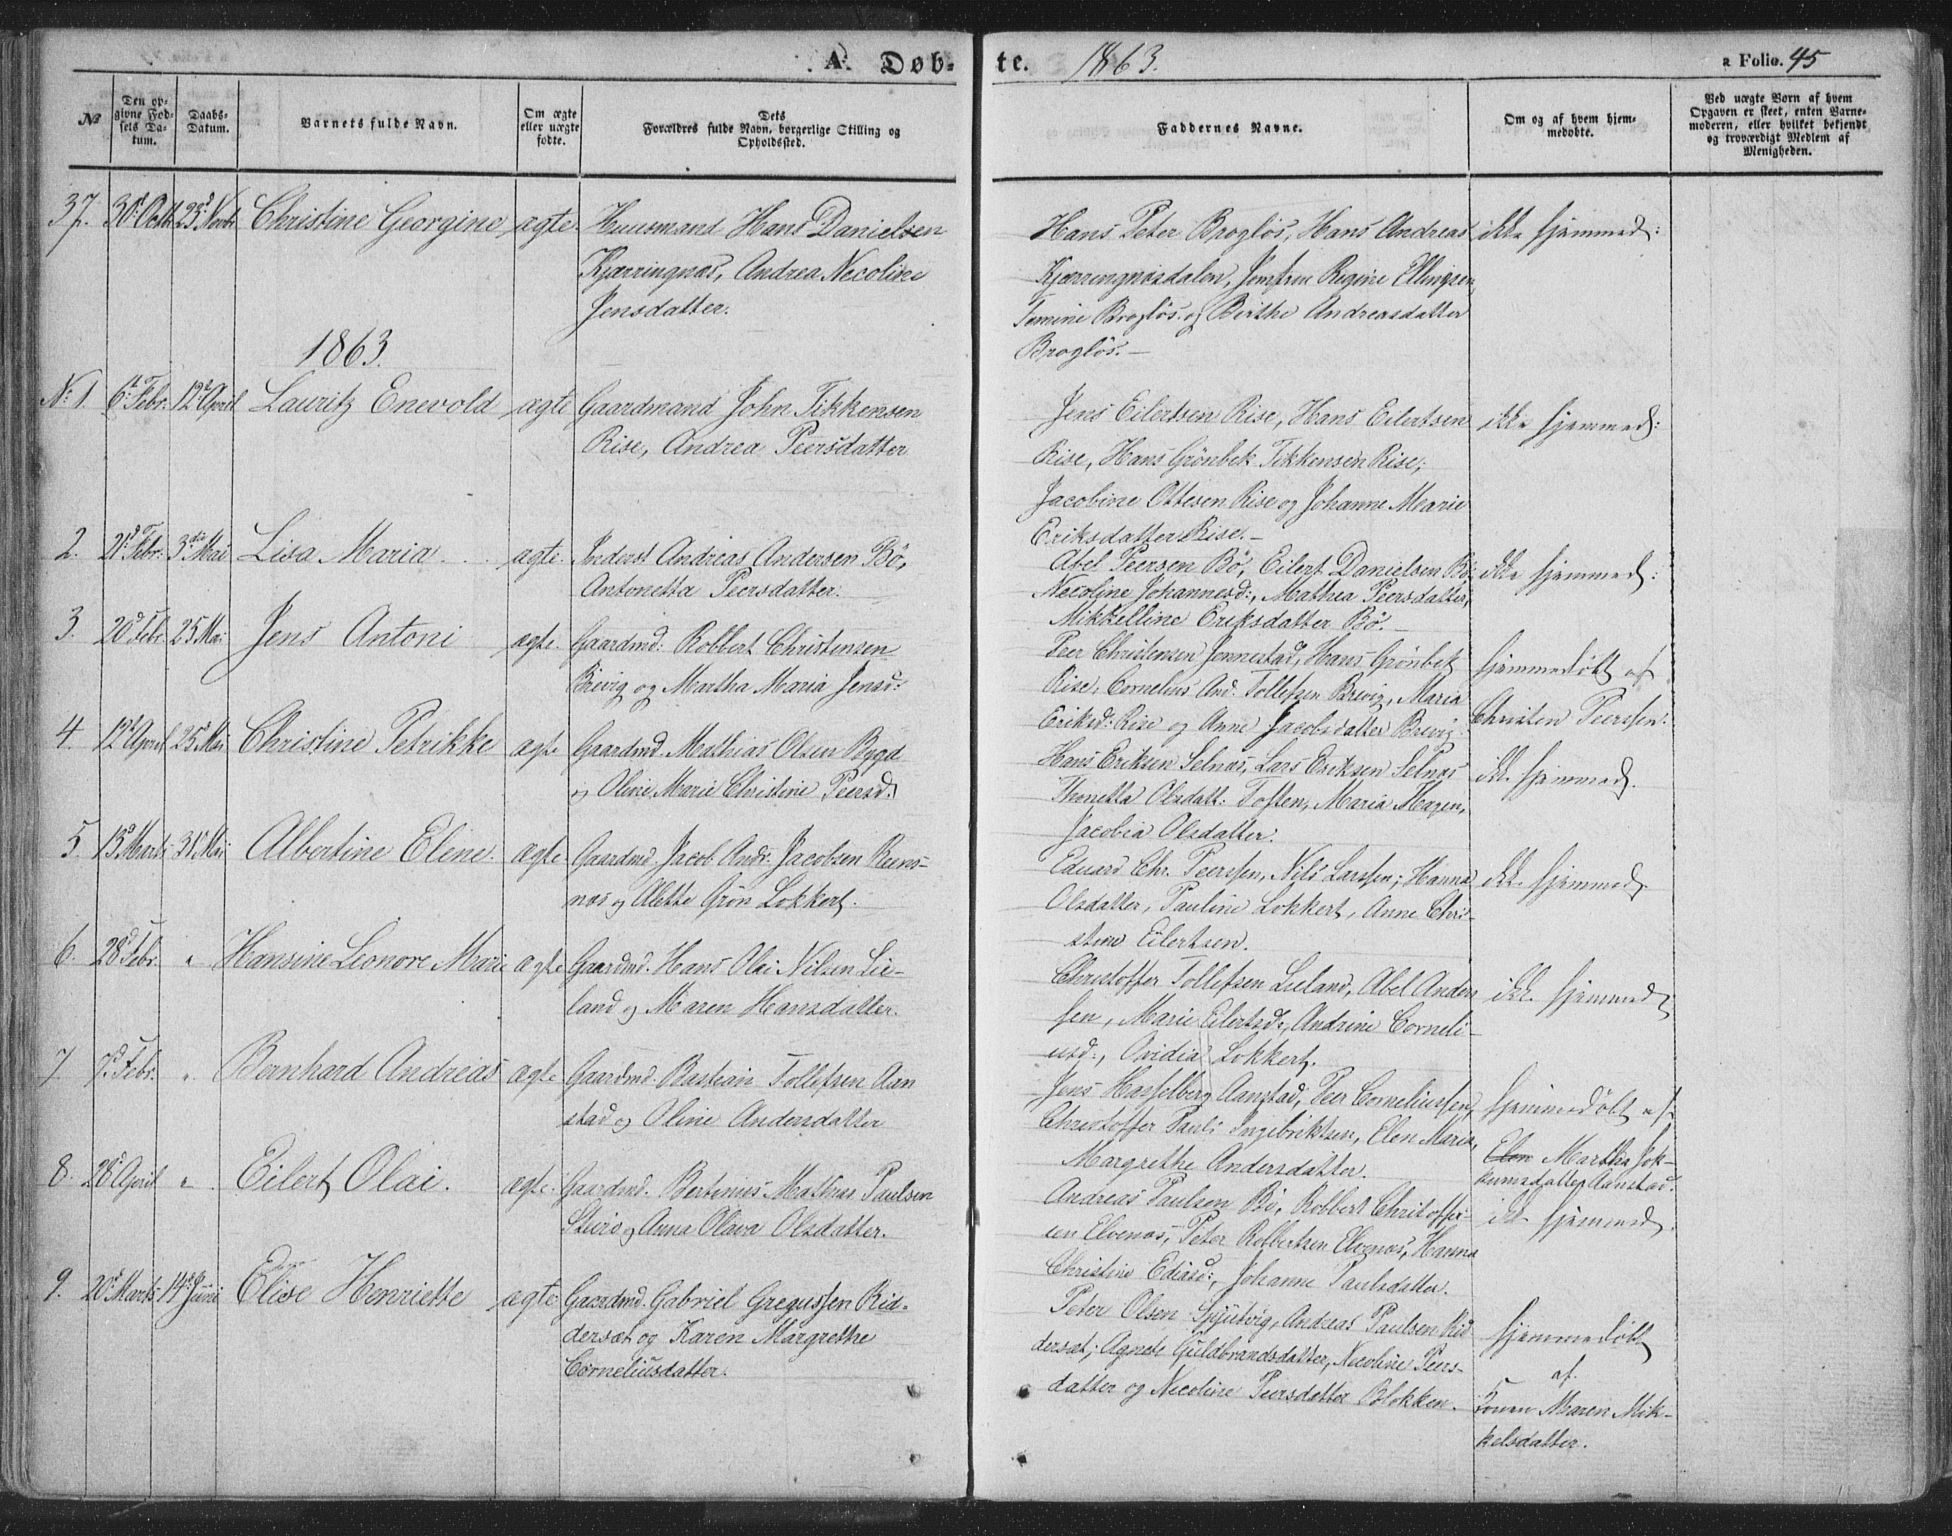 A. Døb-
te. 1863.
a Folio. 45
No
Den op-
givne Fød-
sels Da-
tum.
Daabs-
Datum.
Barnets fulde Navn.
Om ægte
eller uægte
fødte.
Dets
Forældres fulde Navn, borgerlige Stilling og
Opholdssted.
Faddernes Navne.
Om og af hvem hjem-
medøbte.
Ved uægte Børn af hvem
Opgaven er skeet, enten Barne-
moderen, eller hvilket bekjendt
og troværdigt Medlem af
Menigheden.
37. 30t Octb 23d Novbr Christine Georgine ægte. Huusmand Hans Danielsen
Kjærringnæs, Andrea Necoline
Jensdatter.
Hans Peter Brogløs, Hans Andreas
Kjærringnæsdalen, Jomfru Regine Ellingsen,
Tomine Brogløs og Birthe Andreasdatter
Brogløs.—
ikke hjemmed:
1863.
No 1. 6te Febr. 12te April Lauritz Enevold ægte Gaardmand John Tikkensen
Rise, Andrea Peersdatter
Jens Eilertsen Rise, Hans Eilertsen
Rise, Hans Grönbek Tikkensen Rise;
Jacobine Ottesen Rise og Johanne Marie
Eriksdatter Rise.—
ikke hjemmed:
2. 21d Febr. 3die Mai Lisa Maria ægte. Inderst Andreas Andersen Bö,
Antonetta Peersdatter.
Abel Peersen Bö, Eilert Danielsen Bö
Necoline Johannesd:, Mathea Peersdatter,
Mikkelline Eriksdatter Bö.—
ikke hjemmed:
3. 20d Febr. 25 Mai Jens Antoni ægte. Gaardmd: Robbert Christensen
Brevig og Martha Maria Jensd:
Peer Christensen Jennestad, Hans Grönbek
Rise, Cornelius And. Tollefsen Brevig, Maria
Eriksd: Rise og Anne Jacobsdatter Brevig.
hjemmedöbt af
Christen Peerssen.
4. 12t April 25d Mai Christine Petrikke ægte Gaardmd. Mathias Olsen Bygd
og Oline Marie Christine Peersd.
Hans Eriksen Selnæs, Lars Eriksen Selnæs
Thonetta Olsdatt: Toften, Maria Mogen,
Jacobia Olsdatter.
ikke hjemmed.
5. 13d Marts 31t Mai Albertine Elene. ægte Gaardmd. Jacob Andr. Jacobsen Reins-
næs og Alette Grön Lokkert.
Eduard Chr. Peerssen, Nils Larssen; Hanna
Olsdatter, Pauline Lokkert, Anne Chri-
stine Eilertsen.
ikke hjemmed.
6. 28d Febr. " Hansine Leonore Marie ægte Gaardmd. Hans Olai Nilsen Lie-
land og Maren Hansdatter.
Christoffer Tollefsen Lieland, Abel Anders
sen, Marie Eilertsd:, Andrine Corneli-
usd:, Ovidia Lokkert.
ikke hjemmed
7. 7d Febr. " Bernhard Andreas ægte Gaardmd. Bastian Tollefsen Aan
stad og Oline Andersdatter
Jens Hasselberg Aanstad, Peer Corneliussen,
Christoffer Pauli Ingebriktsen, Elen Maria,
Margrethe Andersdatter.
hjemmedöbt af
Elen Martha Jok-
kumsdatter Aanstad.
8. 28d April " Eilert Olai. ægte. Gaardmd. Bertenius Mathias Paulsen
Steiro og Anna Olava Olsdatter.
Andreas Paulsen Bö, Robbert Christoffer-
sen Elvenæs, Peter Robbertsen Elvenæs, Hanna
Christine Ediasd:, Johanne Paulsdatter.
ikke hjemmed.
9. 20d Marts 14d Juni Elise Henriette ægte. Gaardmd. Gabriel Gregussen Rid-
dersæt og Karen Margrethe
Corneliusdatter.
Peter Olsen Spjutvig, Andreas Paulsen Rid
dersæt; Agnete Guldbrandsdatter, Necoline Peers-
datter og Necoline Peersdatter Blokken.
hjemmedöbt
af
Konen Maren Mik-
kelsdatter.